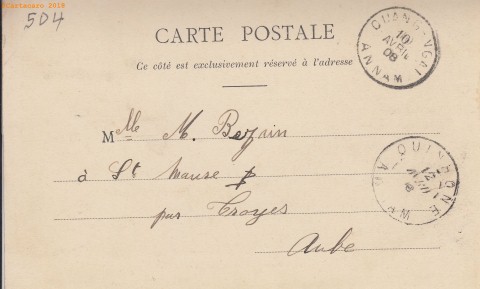 ©Cartexaro 2018
504
CARTE POSTALE
Ce côté est exclusivement réservé à l'adresse
QUANG-NGAI
10
AVRIL
08
ANNAM
Mlle M. Bezain
à St Mause
par Troyes
Aube
QUINHONE
ANNAM